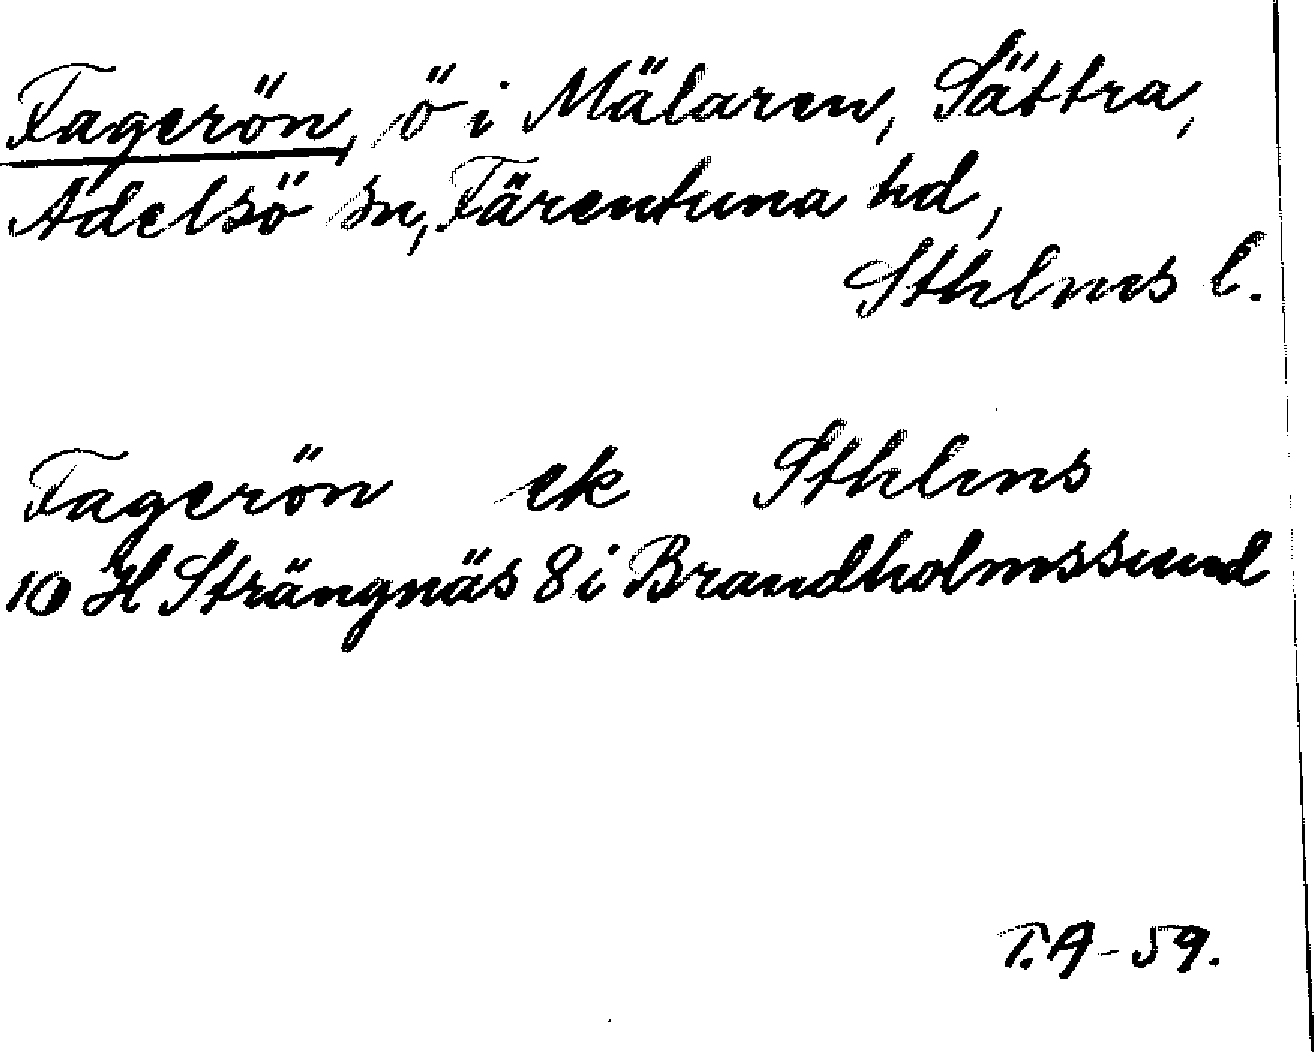 Fagerön, ö i Mälaren, Sättra,
Adelsö sn, Färentuna hd,
Sthlms l.
Fagerön ek Sthlms
10 H Strängnäs 8 i Brandholmssund
T.A-59.